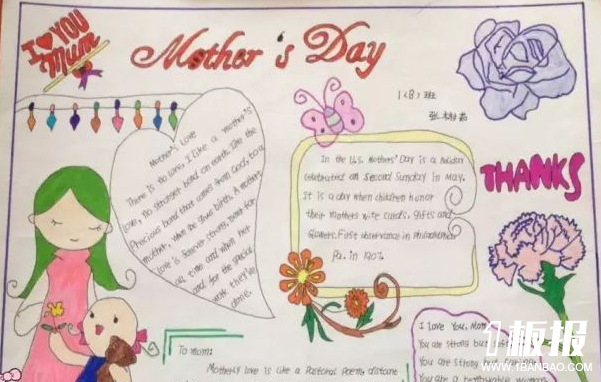 I ♥ YOU
Mum
Mother's Day
1(8)班
Mother's Love
There is no love, like a mother's
love, no stronger bond on earth. like the
Precious bond that comes from God, to a
mother, when she gives birth. A mother's
love is forever strong, never for
all time and when her
for the special
work they've
done.
In the U.S. Mothers' Day is a holiday
celebrated on second Sunday in May.
It is a day when children honor
their mothers with cards, gifts and
flowers. First observance in Philadelphia
Pa. in 1907
THANKS
To mom:
Mother's love is like a Pastoral Poems distant
I Love You, Mom
You are strong but
You are strong but caring
You are a
板报
WWW.1BANBAO.COM